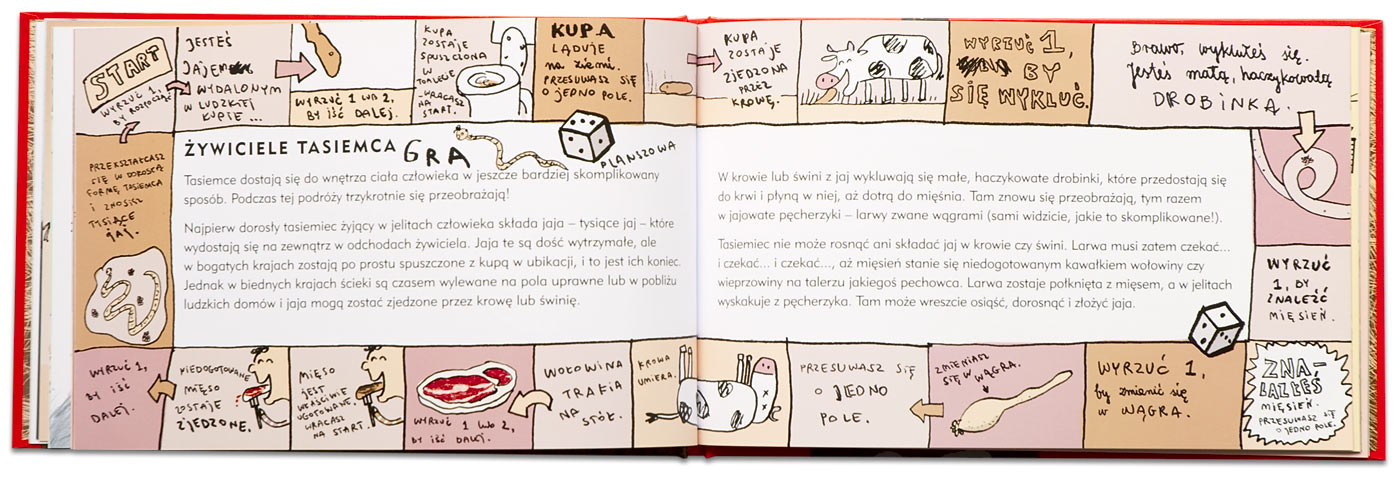 START
WYRZUĆ 1,
BY ROZPOCZĄĆ
JESTEŚ
JAJEM
WYDALONYM
W LUDZKIEJ
KUPIE ...
WYRZUĆ 1 LUB 2,
BY IŚĆ DALEJ.
KUPA
ZOSTAJE
SPUSZCZONA
W
TOALECIE
WRACASZ
NA
START.
KUPA
LĄDUJE
na ziemi.
PRZESUWASZ SIĘ
O JEDNO POLE.
KUPA
ZOSTAJE
ZJEDZONA
PRZEZ
KROWĘ.
WYRZUĆ 1,
BY
SIĘ WYKLUĆ.
Brawo, wyklułeś się.
Jesteś małą, haczykowatą
DROBINKĄ.
WYRZUĆ
1, BY
ZNALEŹĆ
MIĘSIEŃ.
ZNA-
LAZŁEŚ
MIĘSIEŃ.
PRZESUWASZ SIĘ
O JEDNO POLE.
WYRZUĆ 1,
by zmienić się
w WĄGRA.
ZMIENIASZ
SIĘ W WĄGRA.
PRZESUWASZ SIĘ
O JEDNO
POLE.
KROWA
UMIERA.
WOŁOWINA
TRAFIA
NA
STÓŁ.
WYRZUĆ 1 LUB 2,
BY IŚĆ DALEJ.
MIĘSO
JEST
WŁAŚCIWIE
UGOTOWANE.
WRACASZ
NA START.
NIEDOGOTOWANE
MIĘSO
ZOSTAJE
ZJEDZONE.
WYRZUĆ 1,
BY IŚĆ
DALEJ.
PRZEKSZTAŁCASZ
SIĘ W DOROSŁĄ
FORMĘ TASIEMCA
I ZNOSISZ
TYSIĄCE
jaj.
ŻYWICIELE TASIEMCA GRA
PLANSZOWA
Tasiemce dostają się do wnętrza ciała człowieka w jeszcze bardziej skomplikowany
sposób. Podczas tej podróży trzykrotnie się przeobrażają!
Najpierw dorosły tasiemiec żyjący w jelitach człowieka składa jaja – tysiące jaj – które
wydostają się na zewnątrz w odchodach żywiciela. Jaja te są dość wytrzymałe, ale
w bogatych krajach zostają po prostu spuszczone z kupą w ubikacji, i to jest ich koniec.
Jednak w biednych krajach ścieki są czasem wylewane na pola uprawne lub w pobliżu
ludzkich domów i jaja mogą zostać zjedzone przez krowę lub świnię.
W krowie lub świni z jaj wykluwają się małe, haczykowate drobinki, które przedostają się
do krwi i płyną w niej, aż dotrą do mięśnia. Tam znowu się przeobrażają, tym razem
w jajowate pęcherzyki – larwy zwane wągrami (sami widzicie, jakie to skomplikowane!).
Tasiemiec nie może rosnąć ani składać jaj w krowie czy świni. Larwa musi zatem czekać...
i czekać... i czekać..., aż mięsień stanie się niedogotowanym kawałkiem wołowiny czy
wieprzowiny na talerzu jakiegoś pechowca. Larwa zostaje połknięta z mięsem, a w jelitach
wyskakuje z pęcherzyka. Tam może wreszcie osiąść, dorosnąć i złożyć jaja.